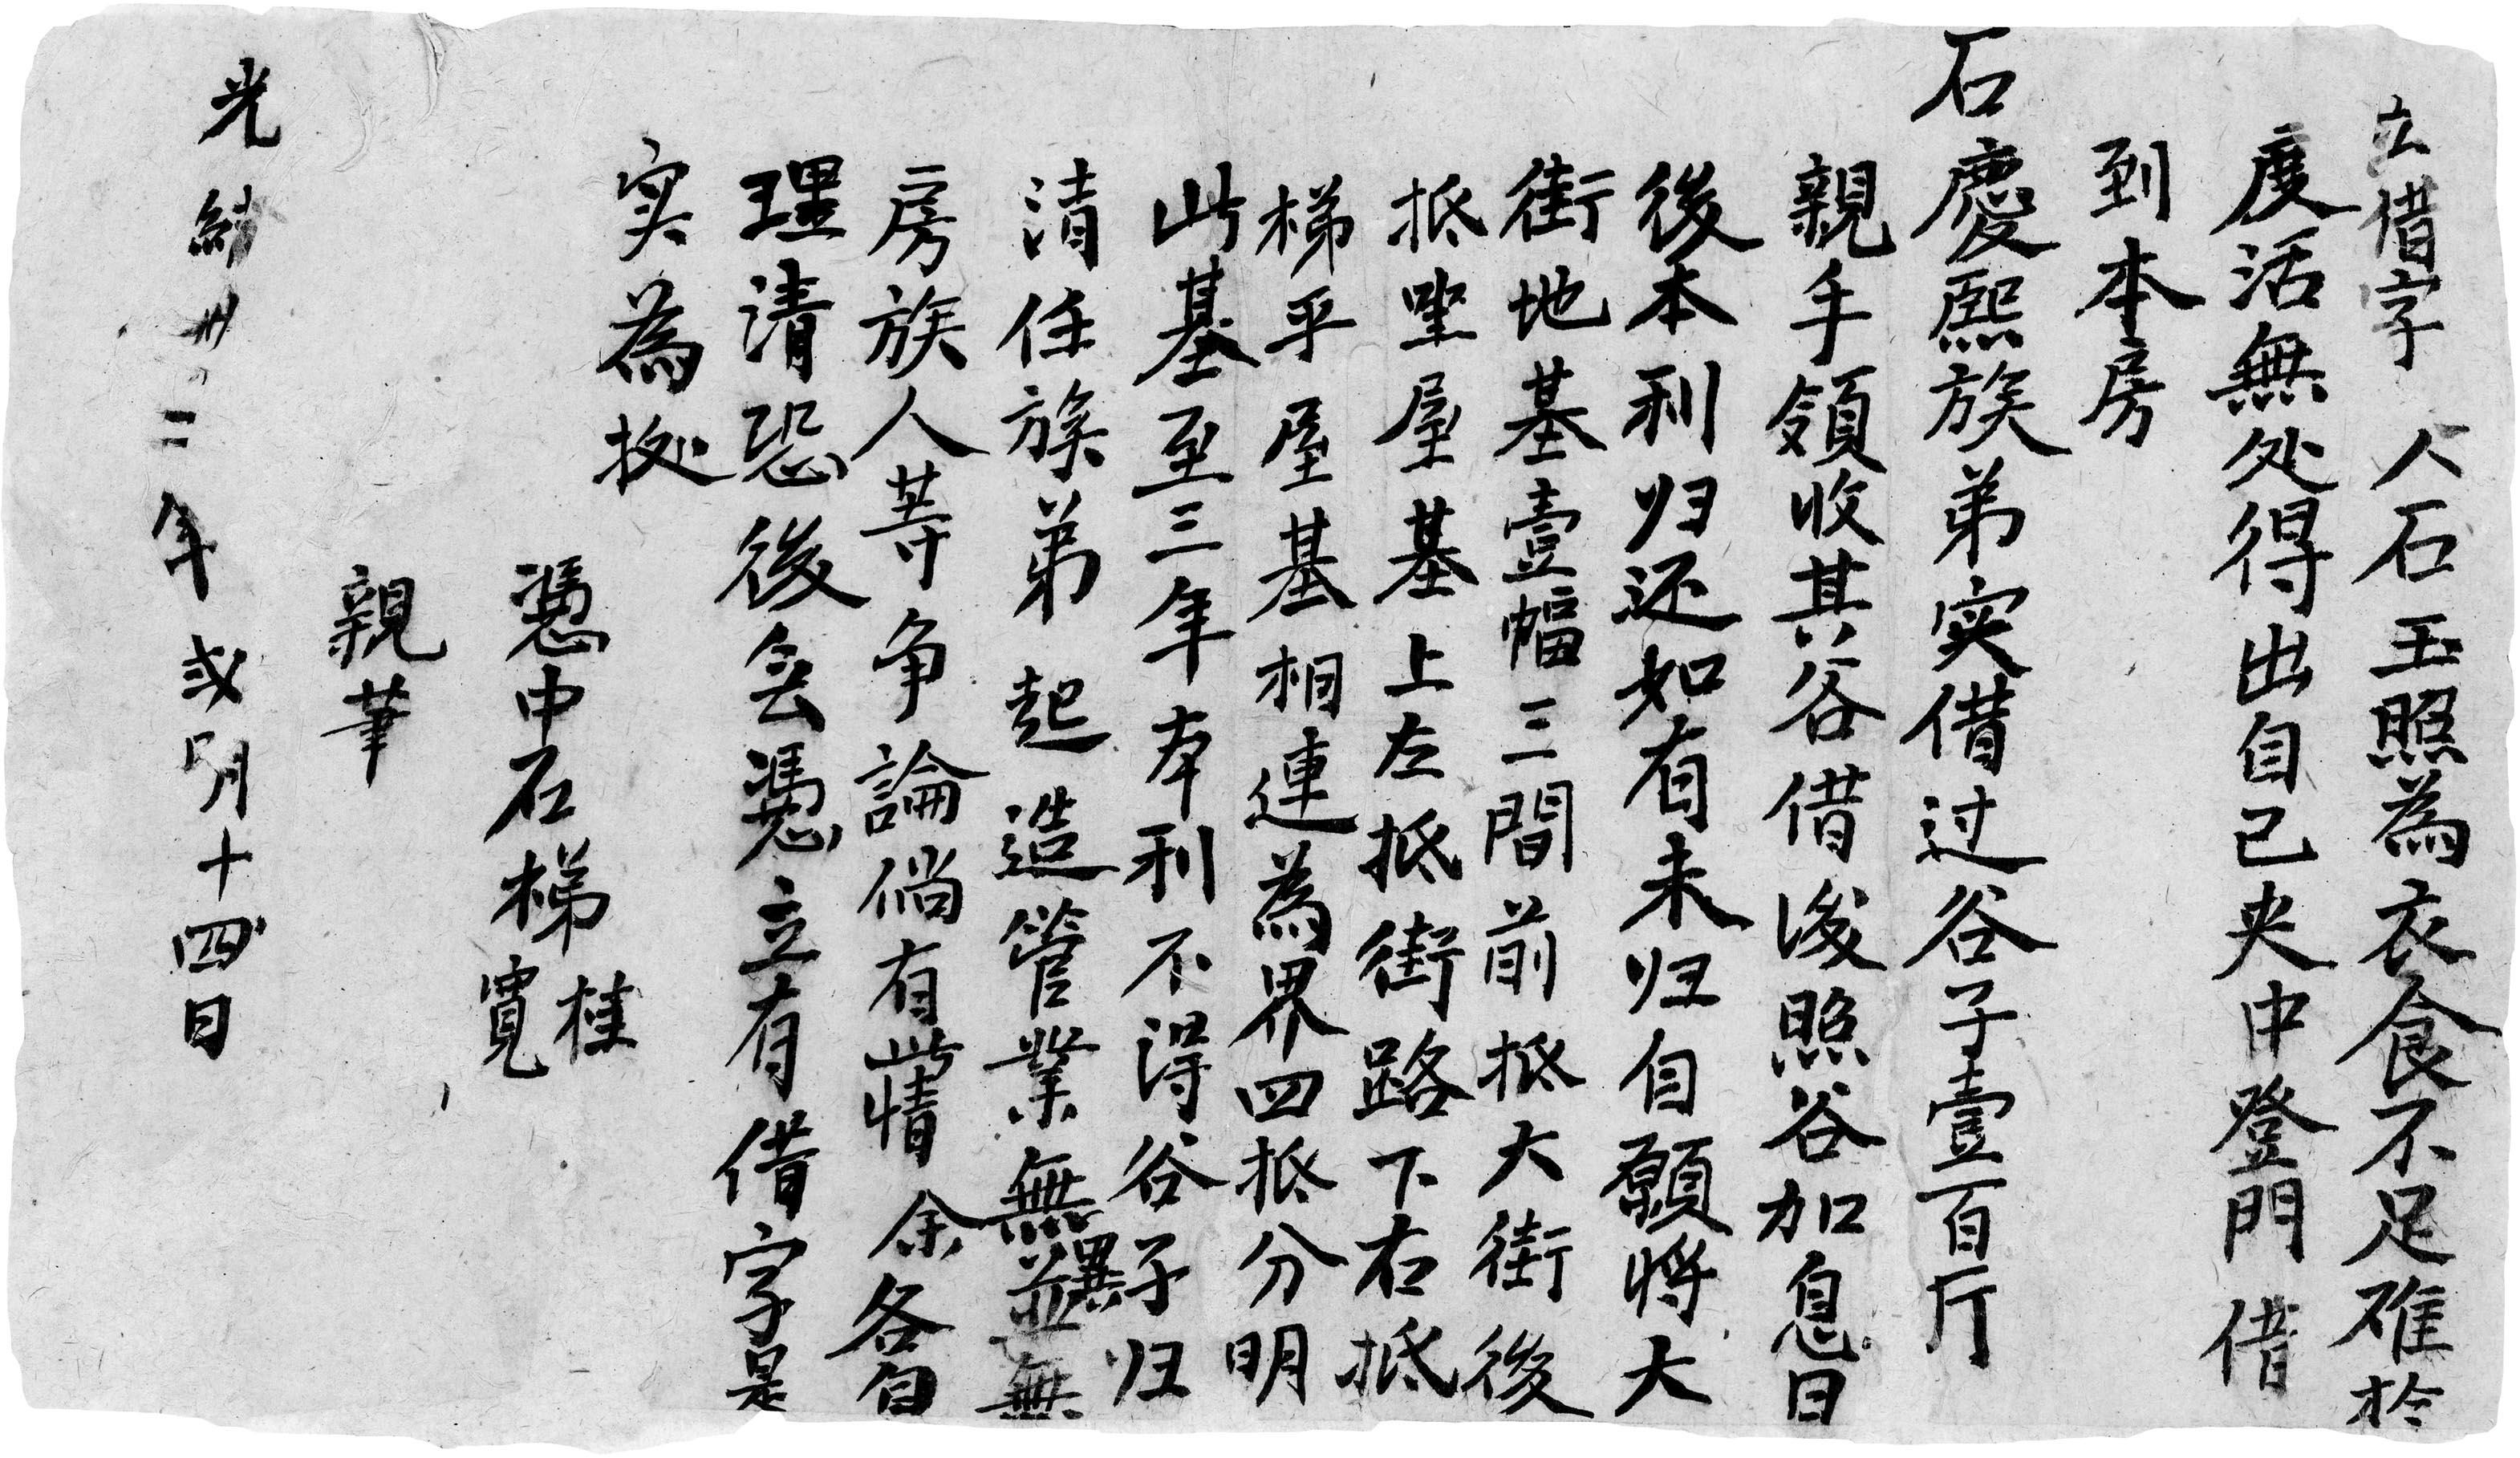 立借字人石玉照為衣食不足碓於
度活無处得出自己央中登門借
到本房
石慶熙族弟实借过谷子壹百斤
親手領收其谷借後照谷加息日
後本利归还如有未归自願将大
街地基壹幅三間前抵大街後
抵堂屋基上左抵街路下右抵
梯乎屋基相連為界四抵分明
此基至三年本利不得谷子归
清任族弟起造管業無異並無
房族人等争論倘有此情余各自
理清恐後無憑立有借字是
实為㧣
憑中石梯桂
寛
親筆
光緒卅二年弍月十四日